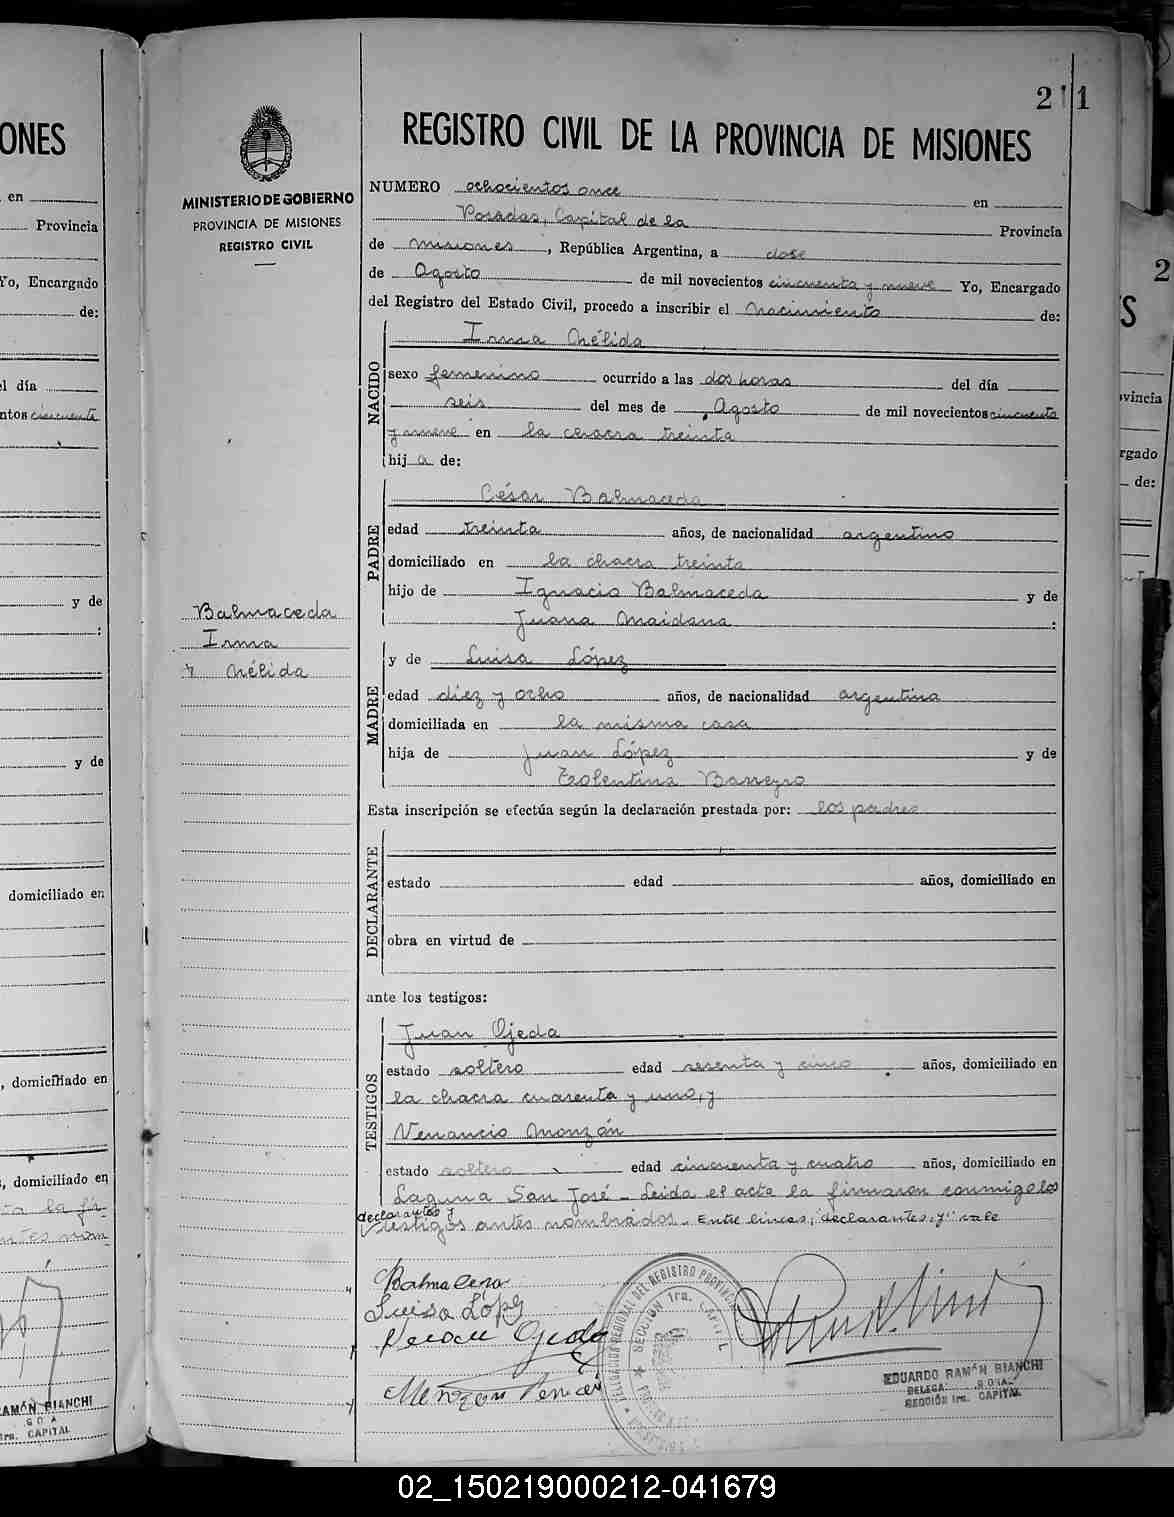 ONES
en
Provincia
Yo, Encargado
de:
el día
ntos cincuenta
y de
:
y de
domiciliado en
, domiciliado en
, domiciliado en
RAMÓN BIANCHI
1ra. CAPITAL
MINISTERIO DE GOBIERNO
PROVINCIA DE MISIONES
REGISTRO CIVIL
Balmaceda
Irma
Nélida
211
REGISTRO CIVIL DE LA PROVINCIA DE MISIONES
NUMERO ochocientos once en
Posadas, Capital de la Provincia
de Misiones, República Argentina, a dose
de Agosto de mil novecientos cincuenta y nueve Yo, Encargado
del Registro del Estado Civil, procedo a inscribir el nacimiento de:
NACIDO
Irma Nélida
sexo femenino ocurrido a las dos horas del día
seis del mes de Agosto de mil novecientos cincuenta
y nueve en la chacra treinta
hija de:
PADRE
César Balmaceda
edad treinta años, de nacionalidad argentino
domiciliado en la chacra treinta
hijo de Ignacio Balmaceda y de
Juana Maidana :
MADRE
y de Luisa López
edad diez y ocho años, de nacionalidad argentina
domiciliada en la misma casa
hija de Juan López y de
Tolentina Barreyro
Esta inscripción se efectúa según la declaración prestada por: los padres
DECLARANTE
estado edad años, domiciliado en
obra en virtud de
ante los testigos:
TESTIGOS
Juan Ojeda
estado soltero edad sesenta y cinco años, domiciliado en
la chacra cuarenta y uno, y
Venancio Monzón
estado soltero edad cincuenta y cuatro años, domiciliado en
Laguna San José - Leida el acta la firmaron conmigo los
declarantes y
testigos antes nombrados. Entre lineas, "declarantes, y" vale
Balmaceda
Luisa López
Ojeda
Monzon
SECCION 1ra. CAPITAL
EDUARDO RAMÓN BIANCHI
SECCIÓN 1ra. CAPITAL
2
S
vincia
rgado
de:
02_150219000212-041679